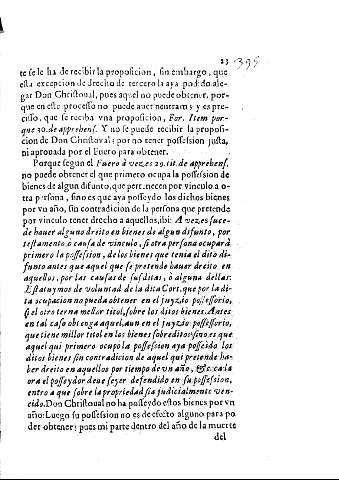 23 395
te se le ha de recibir la proposicion, sin embargo, que
esta excepcion de drecho de tercero la aya podido ale-
gar Don Christoual, pues aquel no puede obtener, por-
que en este processo no puede auer neutram; y es pre-
cisso, que se reciba vna proposicion, For. Item por-
que 30. de aprehens. Y no se puede recibir la proposi-
cion de Don Christoual; por no tener possession justa,
ni aprouada por el Fuero para obtener.
Porque segun el Fuero à vezes 29. tit. de apprehens,
no puede obtener el que primero ocupa la possession de
bienes de algun difunto, que pertenecen por vinculo a o-
tra persona, sino es que aya posseido los dichos bienes
por vn año, sin contradicion de la persona que pretende
por vinculo tener drecho a aquellos, ibi: A vezes suce-
de hauer alguno dreito en bienes de algun difunto, por
testamento ò causa de vinculo, si otra persona ocupará
primero la possession, de los bienes que tenia el dito di-
funto antes que aquel que se pretende hauer dreito en
aquellos, por las causas de susditas, ò alguna dellas:
Estatuymos de voluntad de la dita Cort, que por la di-
ta ocupacion no pueda obtener en el juyzio possessorio,
si el otro terna mellor titol, sobre los ditos bienes. Antes
en tal caso obtenga aquel, aun en el juyzio possessorio,
que tiene millor titol en los bienes sobreditos; sino es que
aquel qui primero ocupo la possession aya posseido los
ditos bienes sin contradicion de aquel qui pretende ha-
ber dreito en aquellos por tiempo de vn año, &c. ca la
ora el posseydor deue seyer defendido en su possession,
entro a que sobre la propriedad sia judicialmente ven-
cido. Don Christoual no ha posseydo estos bienes por vn
año: Luego su possession no es de efecto alguno para po
der obtener; pues mi parte dentro del año de la muerte
del